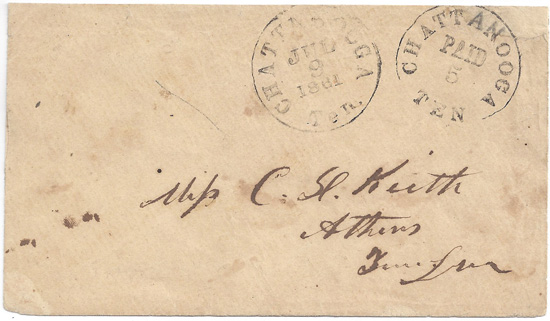 CHATTANOOGA
JUL
9
1861
Ten.
CHATTANOOGA
PAID
5
TEN
Miss C. H. Keith
Athens